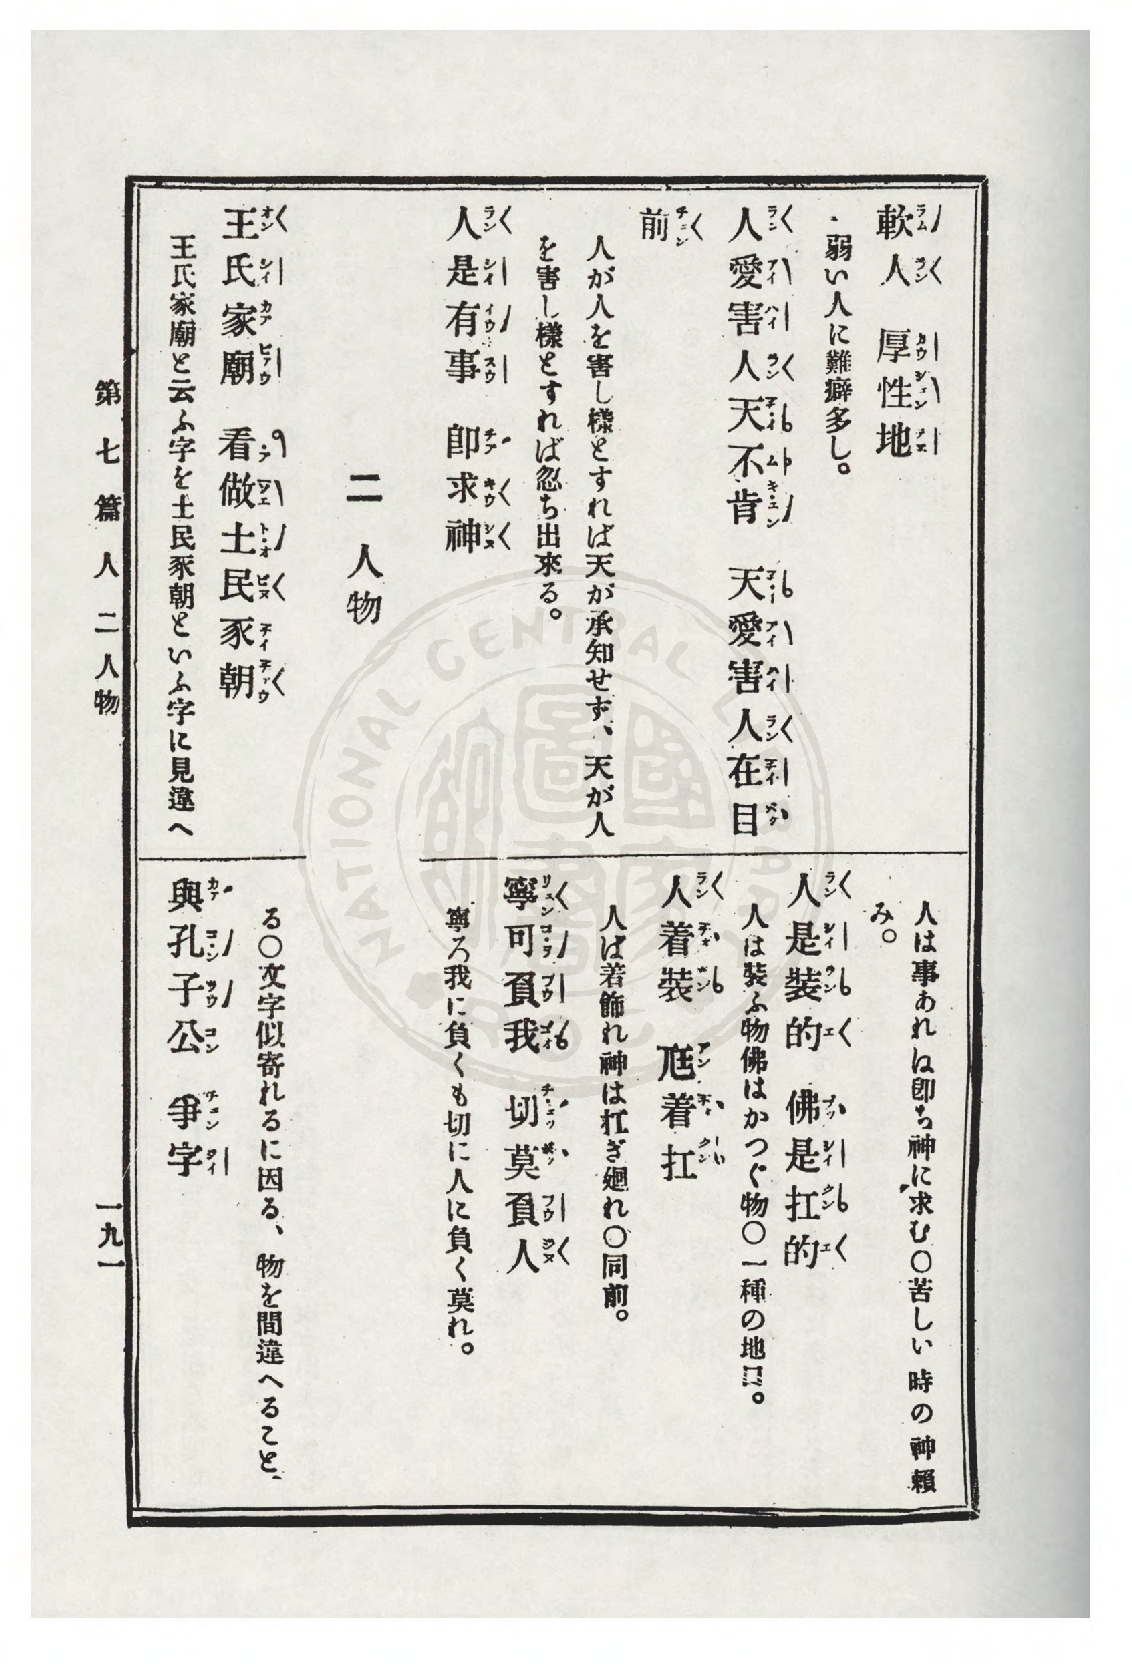 軟人　厚性地
弱い人に難癖多し。
人愛害人天不肯　天愛害人在目
前
人が人を害し樣とすれば天が承知せず、天が人
を害し樣とすれば忽ち出來る。
人是有事　卽求神
二　人物
王氏家廟　看做土民豕朝
王氏家廟と云ふ字を土民豕朝といふ字に見違へ
人は事あれは卽ち神に求む〇苦しい時の神賴
み。
人是裝的　佛是扛的
人は裝ふ物佛はかつぐ物〇一種の地口。
人着裝　尫着扛
人は着飾れ神は扛ぎ廻れ〇同前。
寧可負我　切莫負人
寧ろ我に負くも切に人に負く莫れ。
る〇文字似寄れるに因る、物を間違へること、
與孔子公　爭字
第七篇　人　二　人物
一九一
NATIONAL CENTRAL LIBRARY
R.O.C.
國家圖書館